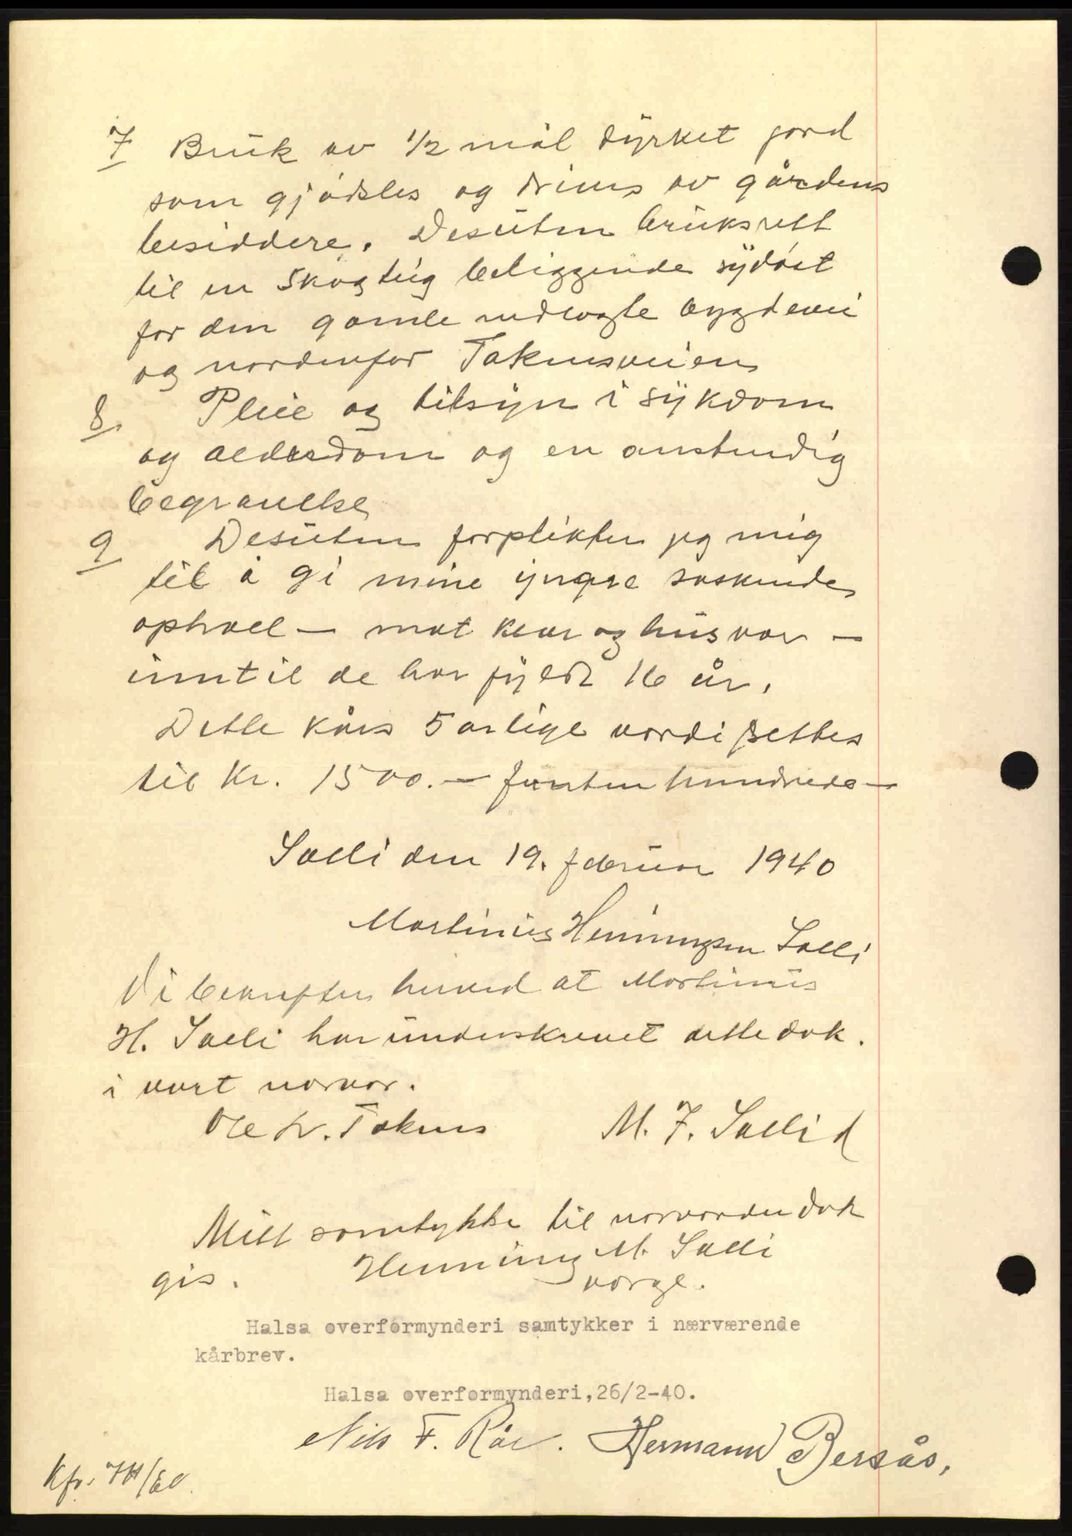 7 Bruk av 1/2 mål dyrket jord
som gjødsles og drives av gårdens
besiddere. Desuten bruksrett
til en skogteig beliggende sydøst
for den gamle nedlagte bygdevei
og nordenfor Taknesveien
8. Pleie og tilsyn i sykdom
og alderdom og en anstendig
begravelse
9 Desuten forplikter jeg mig
til å gi mine yngre søskende
ophold — mat klær og husvær —
inntil de har fyldt 16 år.
Dette kårs 5 årlige verdi settes
til Kr. 1500.— femten hundrede—
Sælli den 19. februar 1940
Martinus Henningsen Sælli
Vi bekrefter herved at Martinus
H. Sælli har underskrevet dette dok.
i vort nærvær.
Ole L. Taknes M. J. Sællid
Mitt samtykke til nærværende dok
gis. Henning M. Sælli
verge.
Halsa overformynderi samtykker i nærværende
kårbrev.
Halsa overformynderi, 26/2-40.
Nils F. Røe. Hermann Bersås.
Kfr.